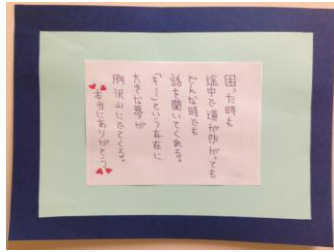 困った時も
途中で道が防がっても
どんな時でも
話を聞いてくれる。
「キミ」という存在に
大きな夢が
沢山にでてくる。
本当にありがとう